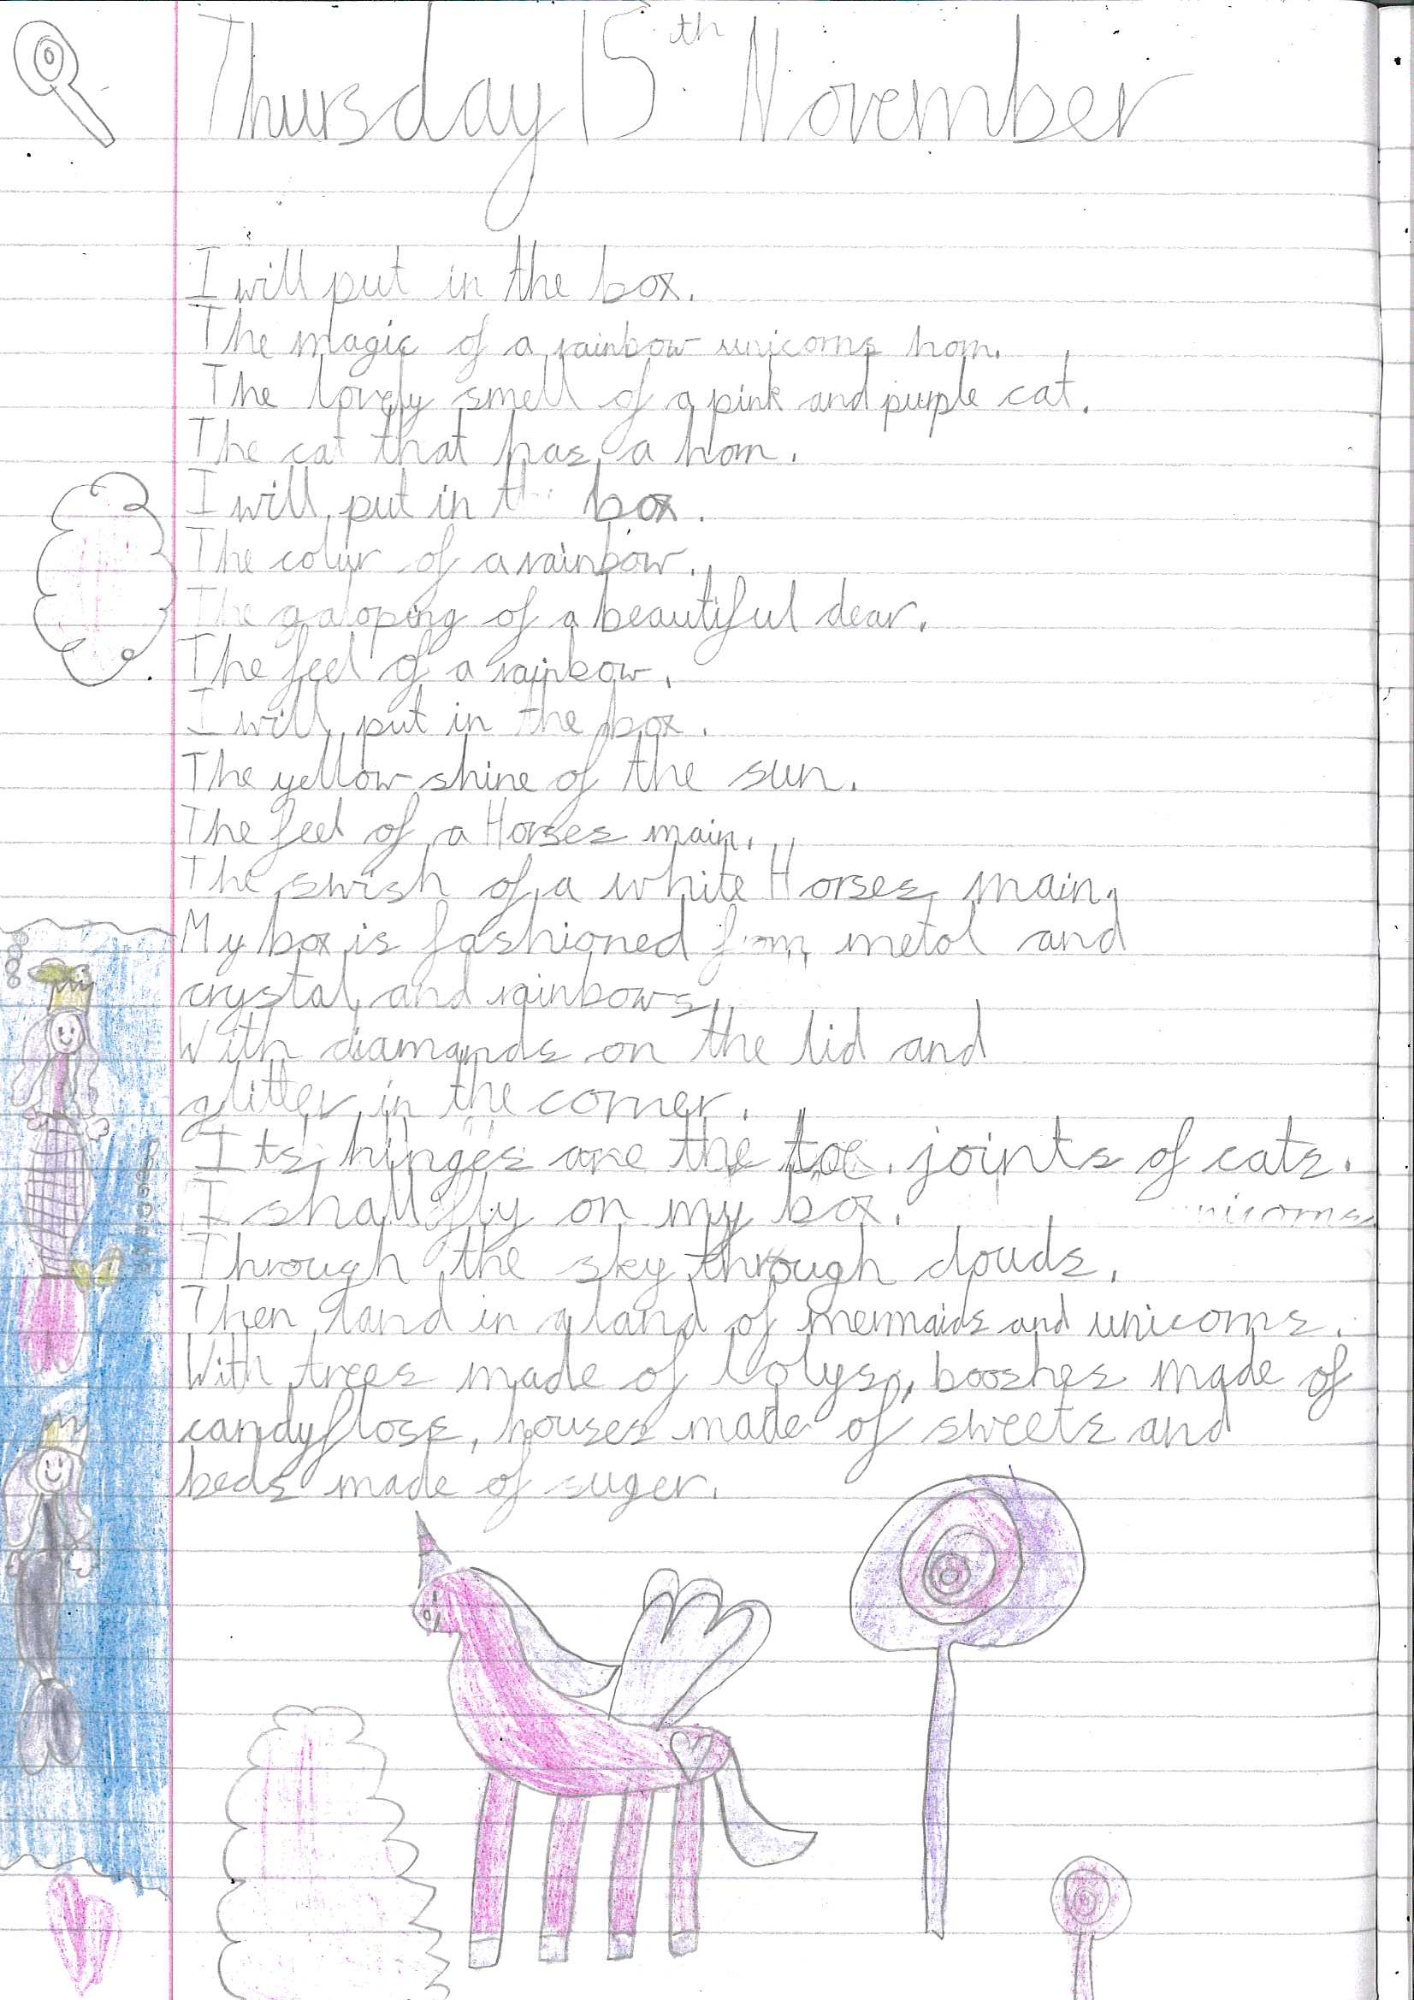 Thursday 15th November
I will put in the box.
The magic of a rainbow unicorns horn.
The lovely smell of a pink and purple cat.
The cat that has a horn.
I will put in th box.
The colur of a rainbow.
The galoping of a beautiful dear.
The feel of a rainbow.
I will put in the box.
The yellow shine of the sun.
The feel of a Horses main.
The swish of a white Horses main.
My box is fashioned from metol and
crystal and rainbows.
With diamands on the lid and
glitter in the corner.
Its hinges are the toe joints of cats.
I shall fly on my box.
unicorns
Through the sky through clouds.
Then land in a land of mermaids and unicorns.
With trees made of lolys, booshes made of
candyfloss, houses made of sweets and
beds made of suger.